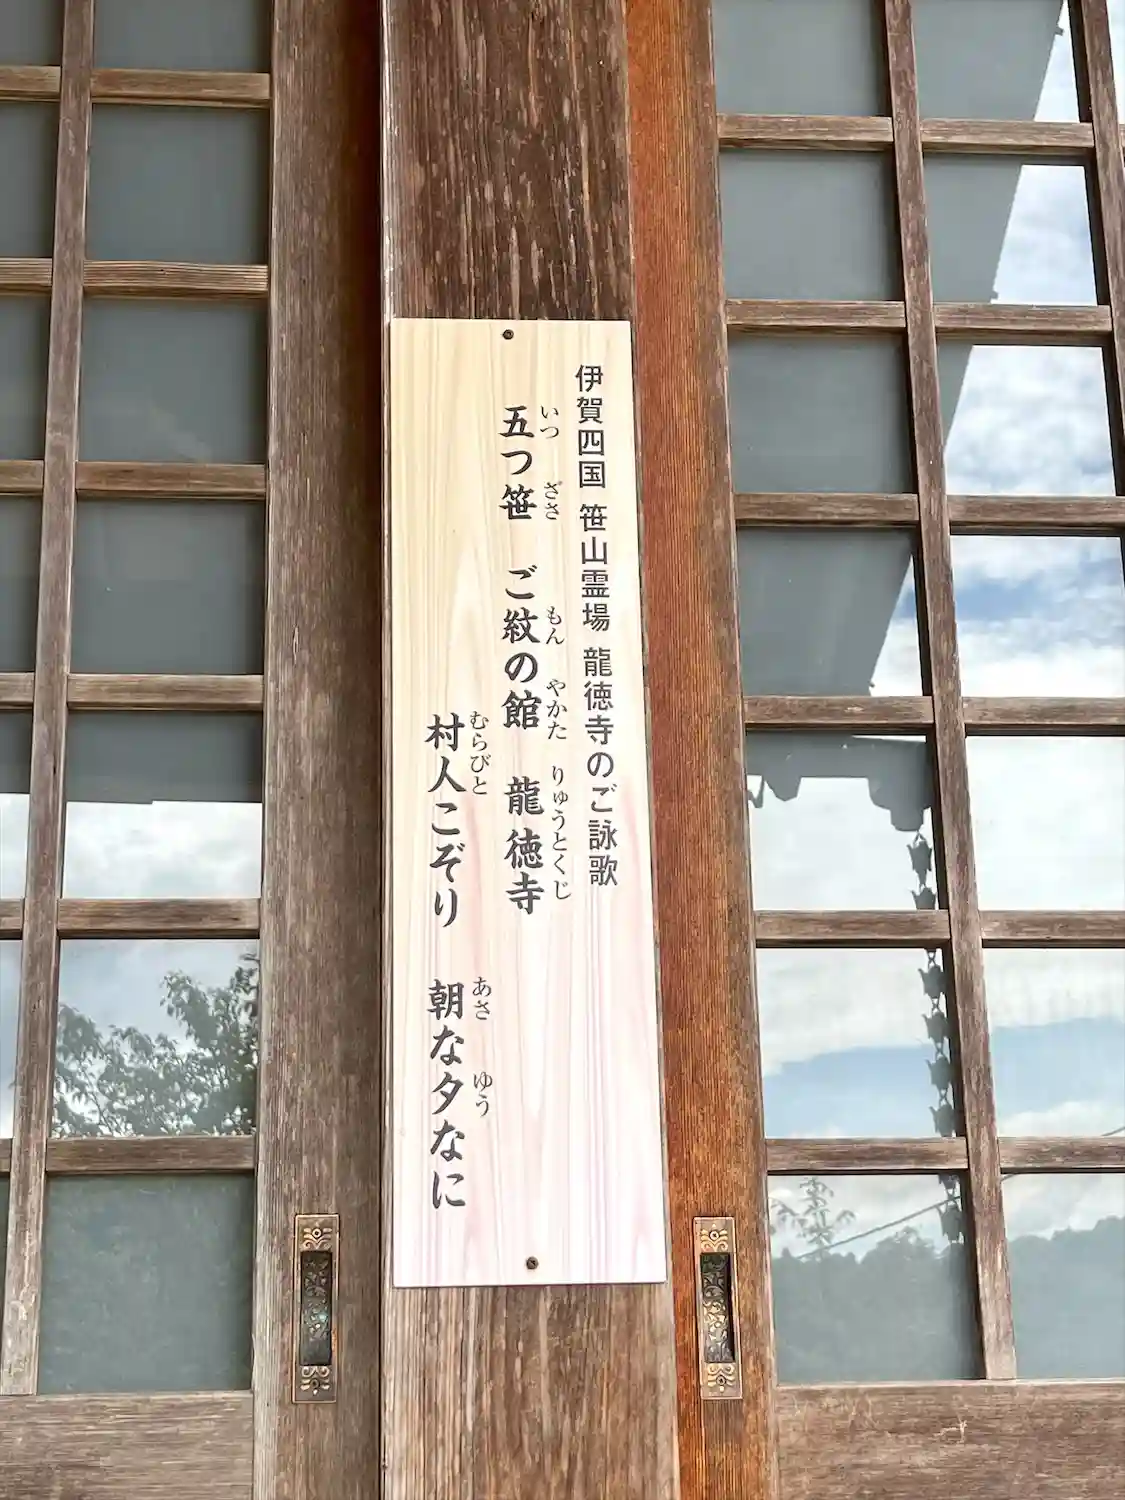 伊賀四国 笹山霊場 龍徳寺のご詠歌
五つ笹 ご紋の館 龍徳寺
いつ ざさ もん やかた りゅうとくじ
村人こぞり 朝な夕なに
むらびと あさ ゆう